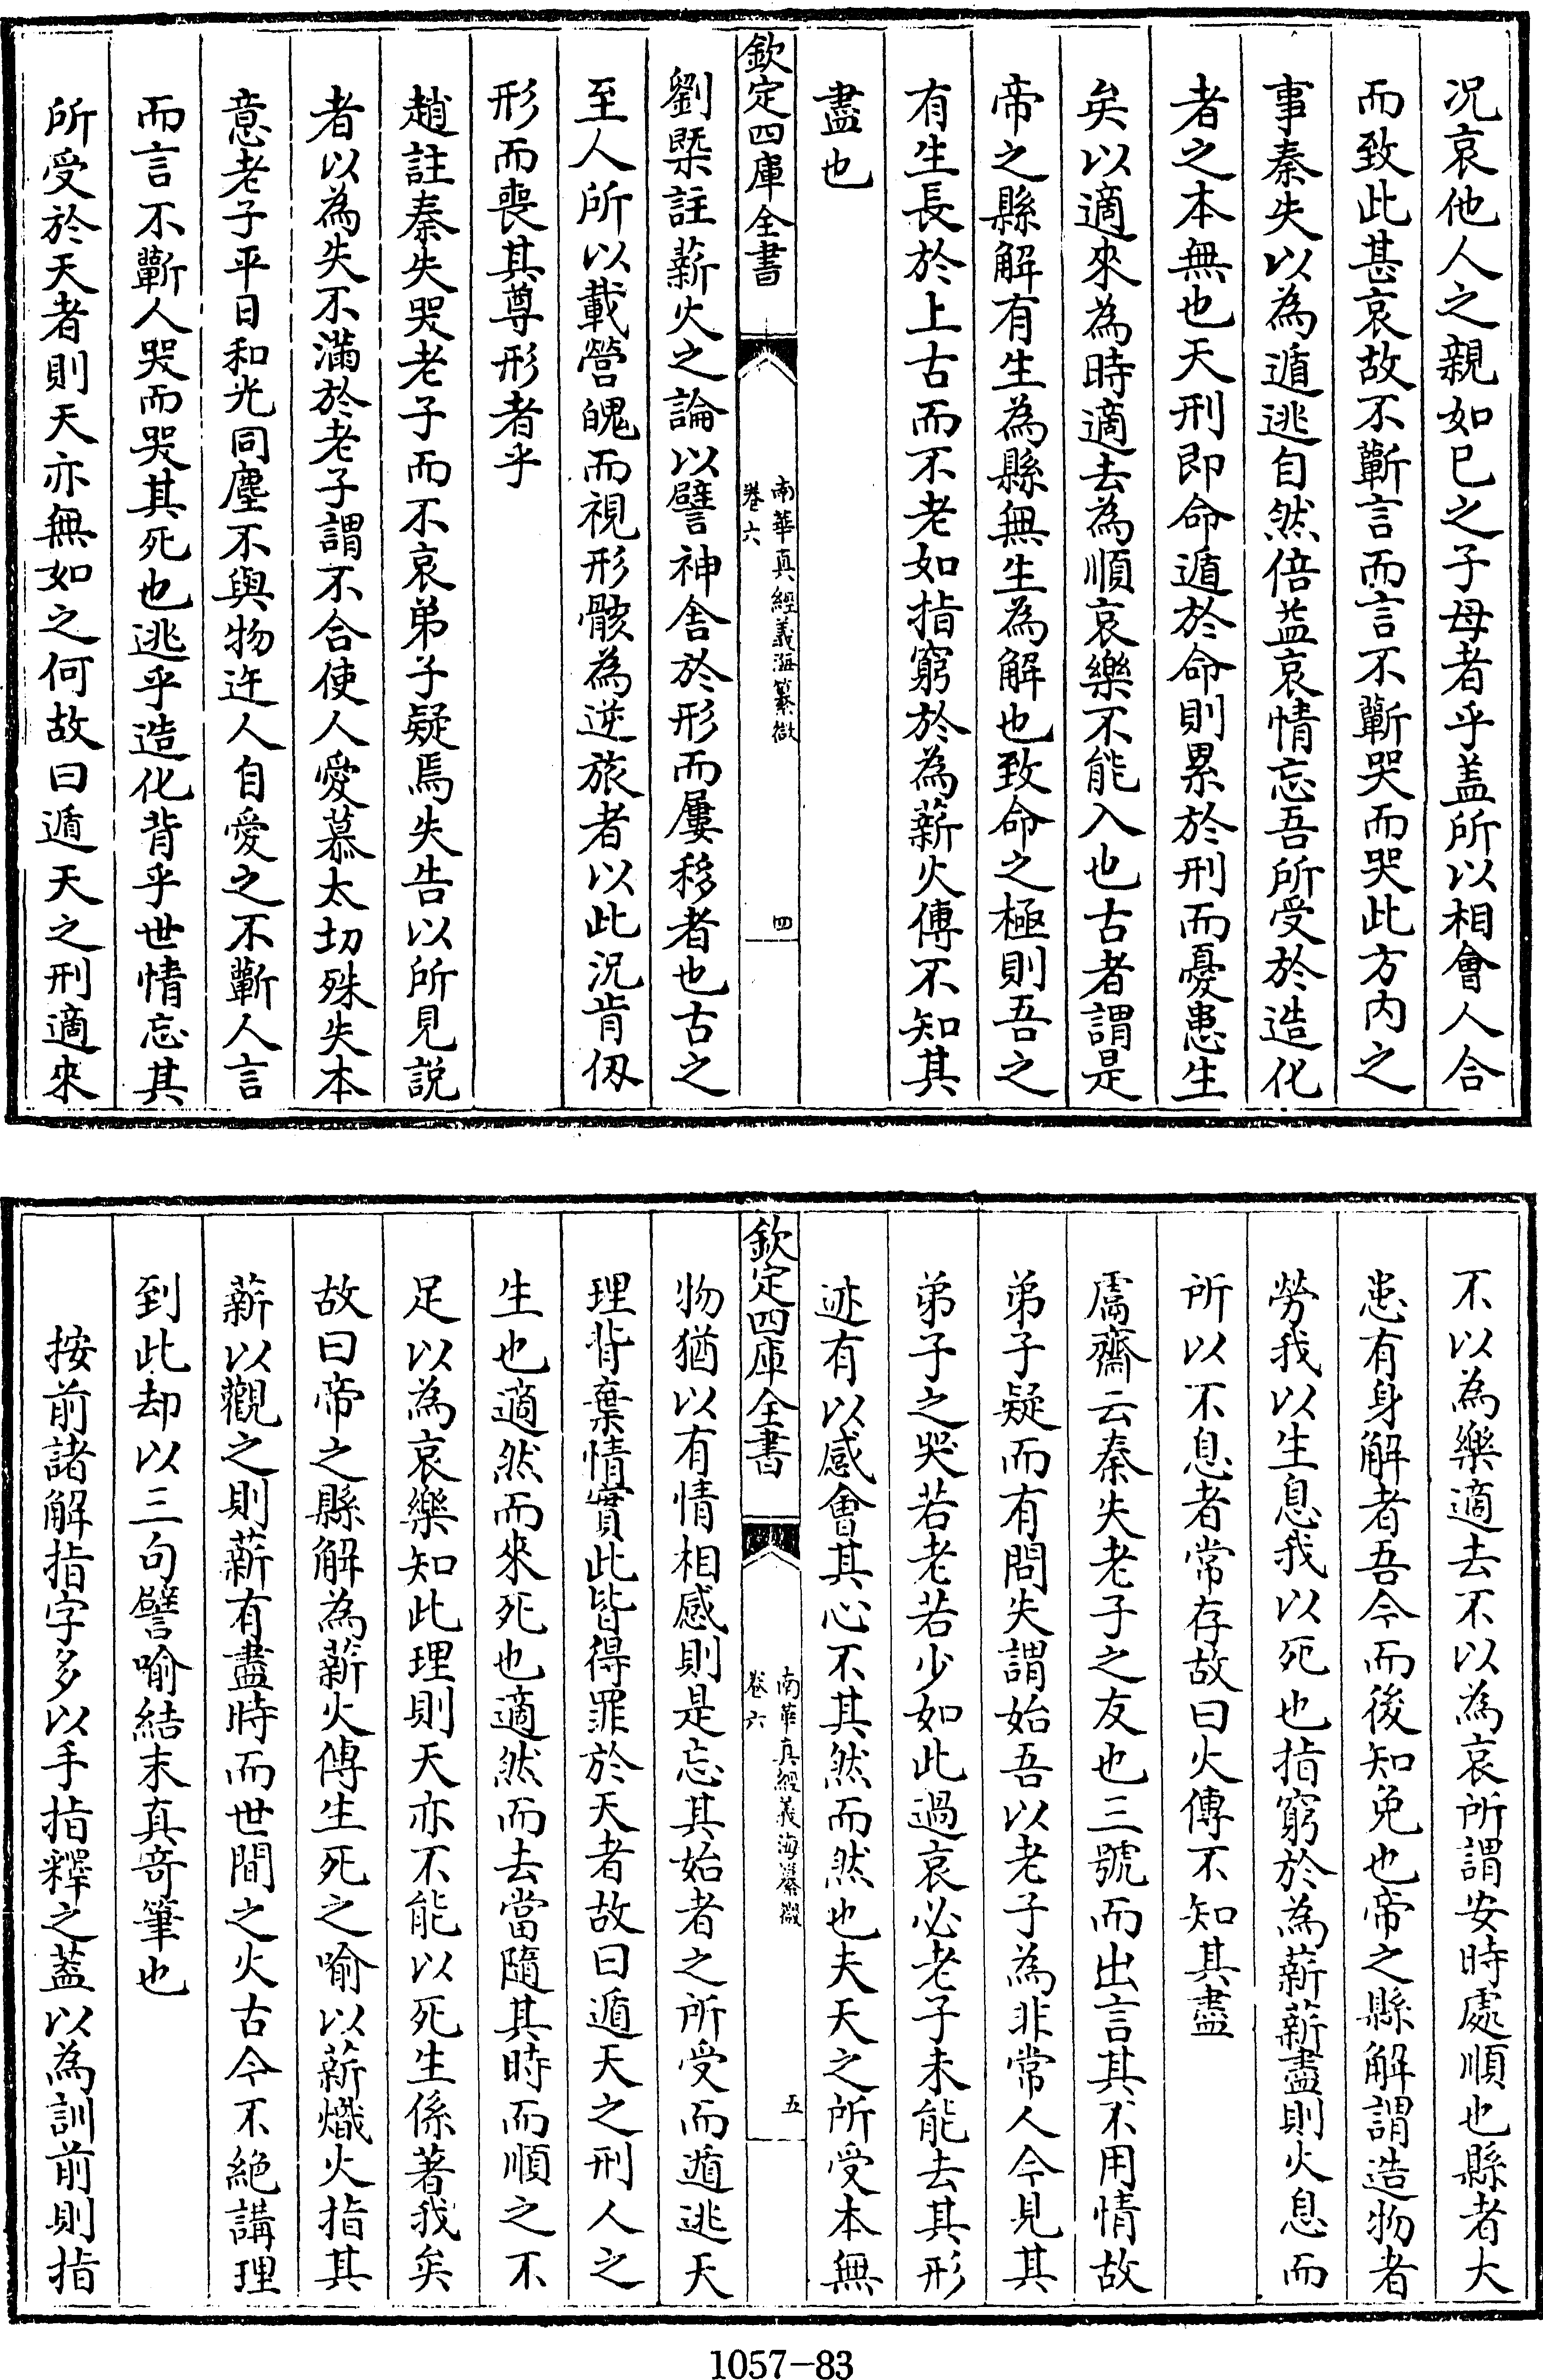 况哀他人之親如已之子母者乎盖所以相會人合
而致此甚哀故不蘄言而言不蘄哭而哭此方内之
事秦失以為遁逃自然倍益哀情忘吾所受於造化
者之本無也天刑即命遁於命則累於刑而憂患生
矣以適來為時適去為順哀樂不能入也古者謂是
帝之縣解有生為縣無生為解也致命之極則吾之
有生長於上古而不老如指窮於為薪火傳不知其
盡也
欽定四庫全書
南華真經義海纂微
卷六
四
劉槩註薪火之論以譬神舍於形而屢移者也古之
至人所以載營魄而視形骸為逆旅者以此況肯仭
形而喪其尊形者乎
趙註秦失哭老子而不哀弟子疑焉失告以所見說
者以為失不滿於老子謂不合使人愛慕太切殊失本
意老子平日和光同塵不與物迕人自愛之不蘄人言
而言不蘄人哭而哭其死也逃乎造化背乎世情忘其
所受於天者則天亦無如之何故曰遁天之刑適來
不以為樂適去不以為哀所謂安時處順也縣者大
患有身解者吾今而後知免也帝之縣解謂造物者
勞我以生息我以死也指窮於為薪薪盡則火息而
所以不息者常存故曰火傳不知其盡
鬳齋云秦失老子之友也三號而出言其不用情故
弟子疑而有問失謂始吾以老子為非常人今見其
弟子之哭若老若少如此過哀必老子未能去其形
迹有以感會其心不其然而然也夫天之所受本無
欽定四庫全書
南華真經義海纂微
卷六
五
物猶以有情相感則是忘其始者之所受而遁逃天
理背棄情實此皆得罪於天者故曰遁天之刑人之
生也適然而來死也適然而去當隨其時而順之不
足以為哀樂知此理則天亦不能以死生係著我矣
故曰帝之縣解為薪火傳生死之喻以薪熾火指其
薪以觀之則薪有盡時而世間之火古今不絶講理
到此却以三句譬喻結末真奇筆也
按前諸解指字多以手指釋之葢以為訓前則指
1057-83